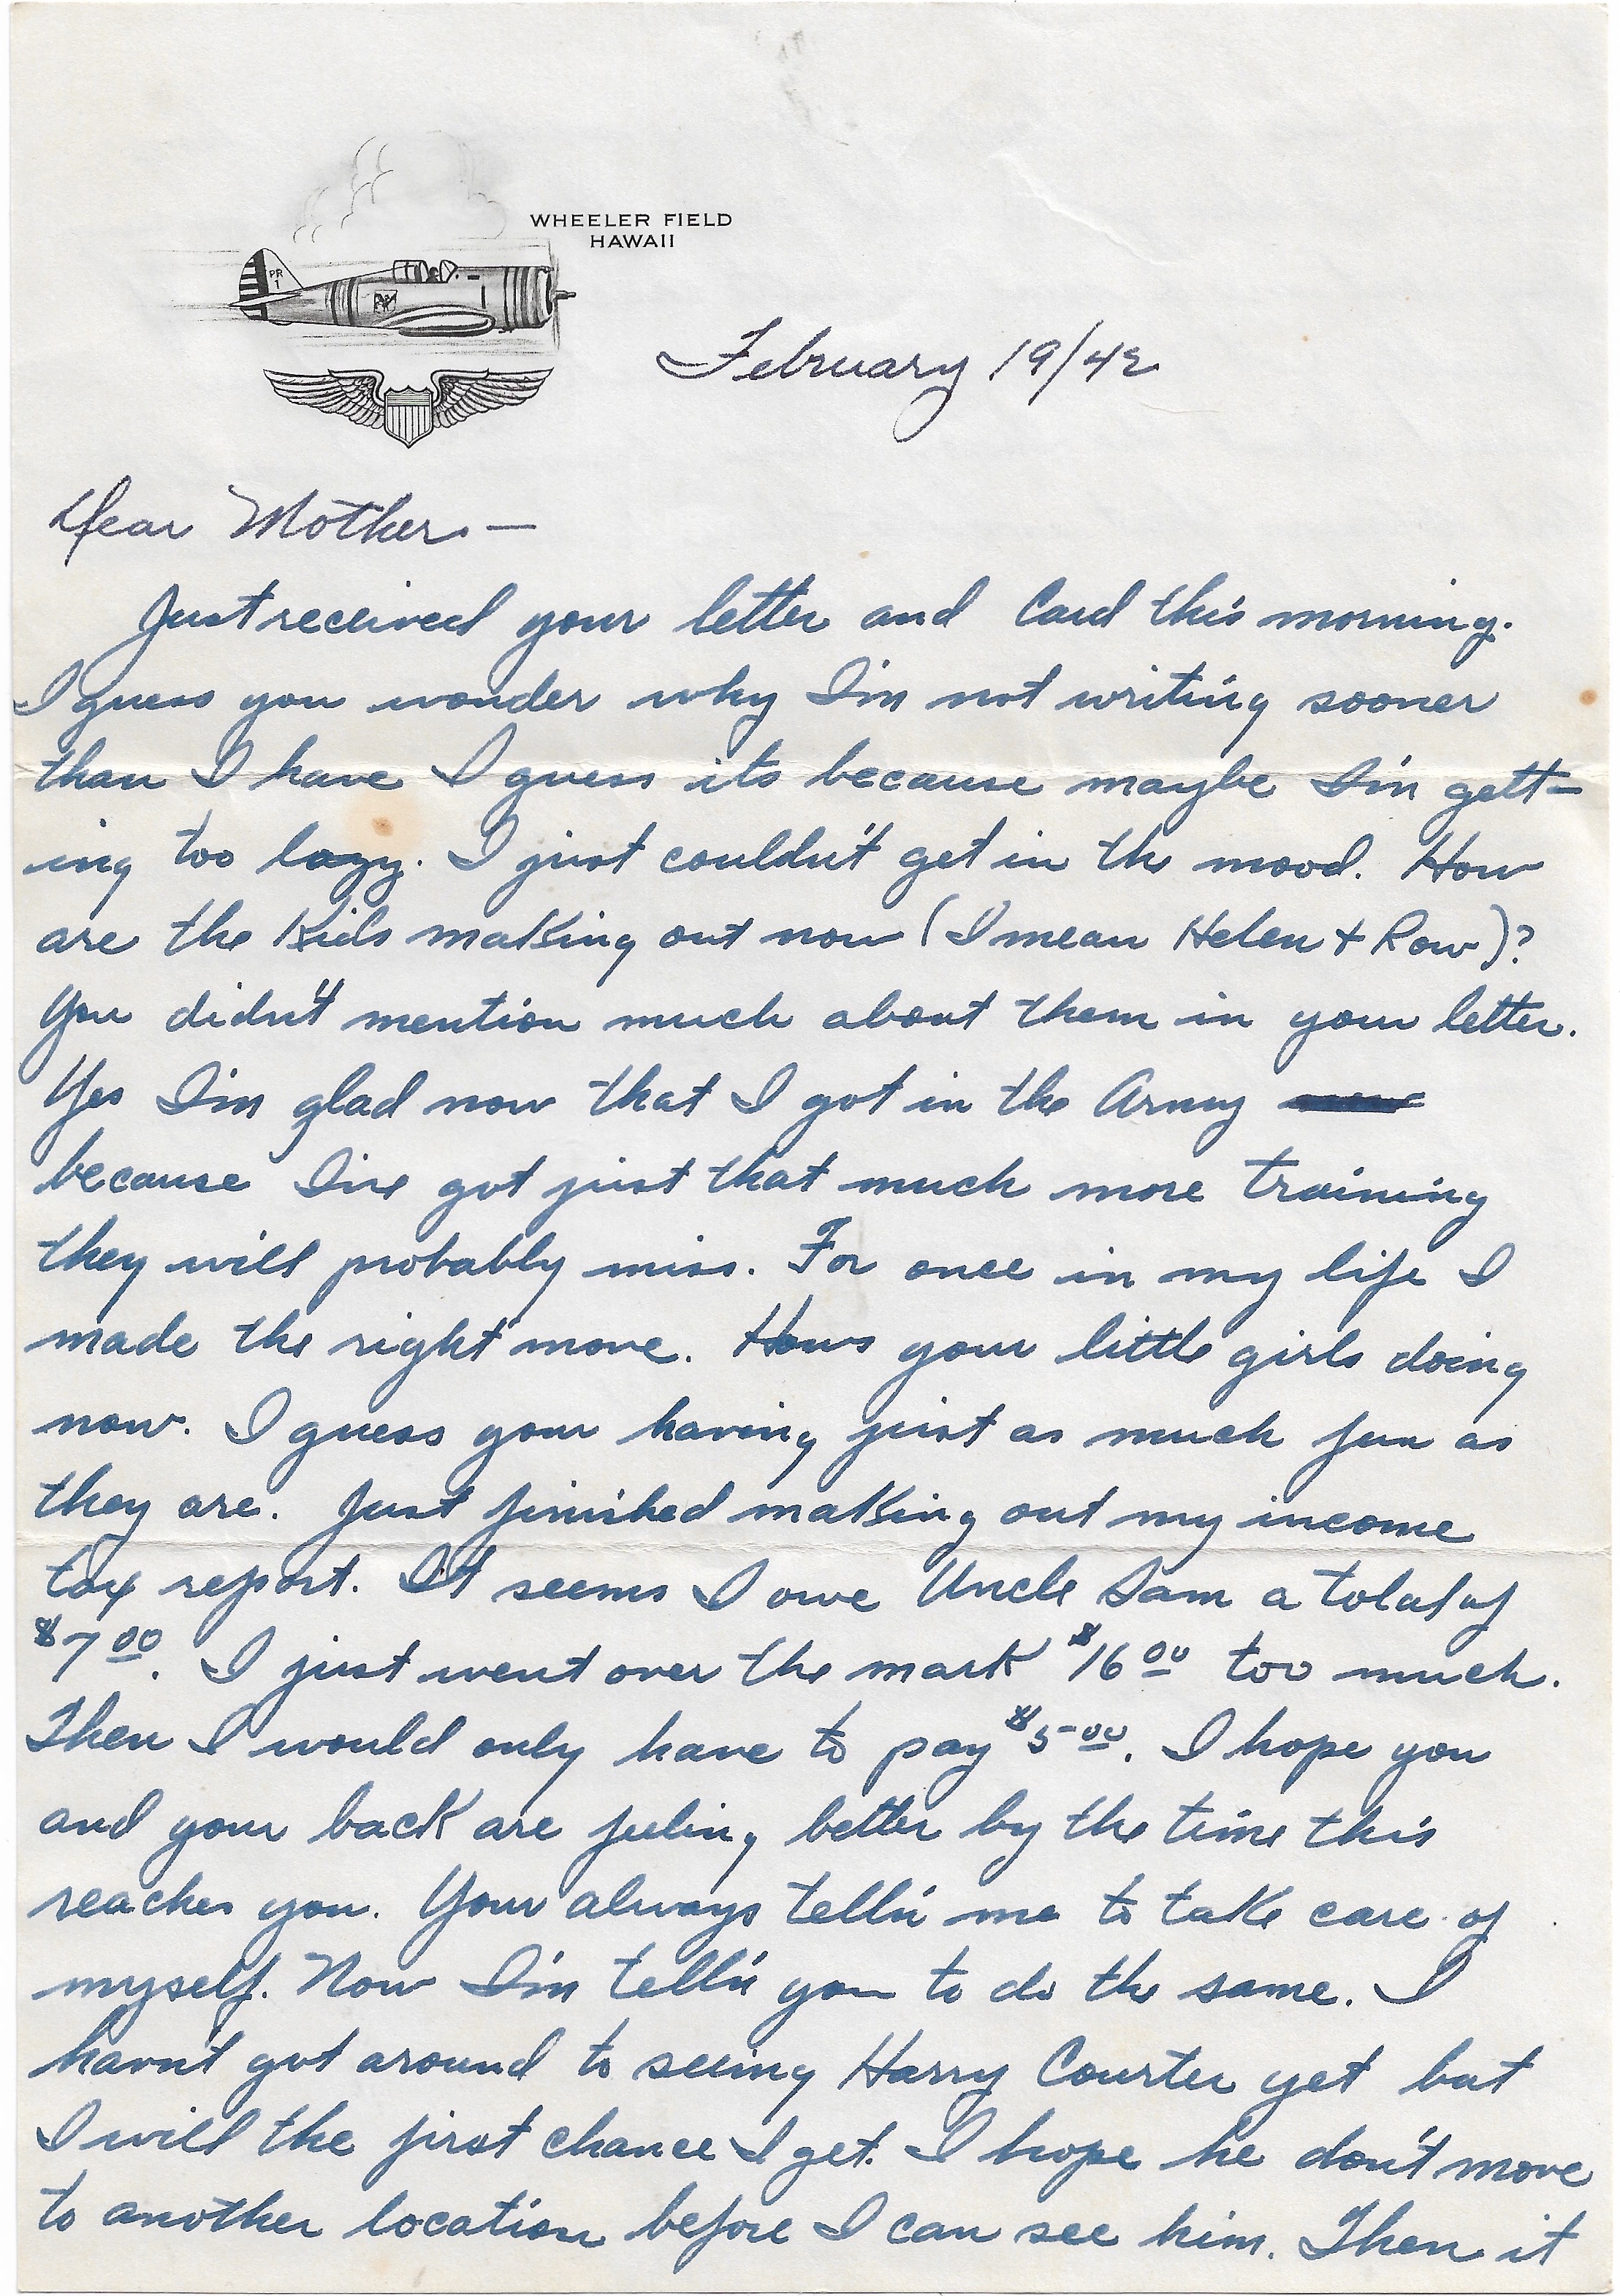 WHEELER FIELD
HAWAII
PR
1
February 19/42
Dear Mother —
Just received your letter and Card this morning.
I guess you wonder why I'm not writing sooner
than I have I guess its because maybe I'm gett-
ing too lazy. I just couldn't get in the mood. How
are the kids making out now (I mean Helen + Row)?
You didn't mention much about them in your letter.
Yes I'm glad now that I got in the Army
because I've got just that much more training
they will probably miss. For once in my life I
made the right move. Hows your little girls doing
now. I guess your having just as much fun as
they are. Just finished making out my income
tax report. It seems I owe Uncle Sam a total of
$7.00. I just went over the mark $16.00 too much.
Then I would only have to pay $5.00. I hope you
and your back are feeling better by the time this
reaches you. Your always tellin me to take care of
myself. Now I'm tellin you to do the same. I
havn't got around to seeing Harry Courter yet but
I will the first chance I get. I hope he don't move
to another location before I can see him. Then it